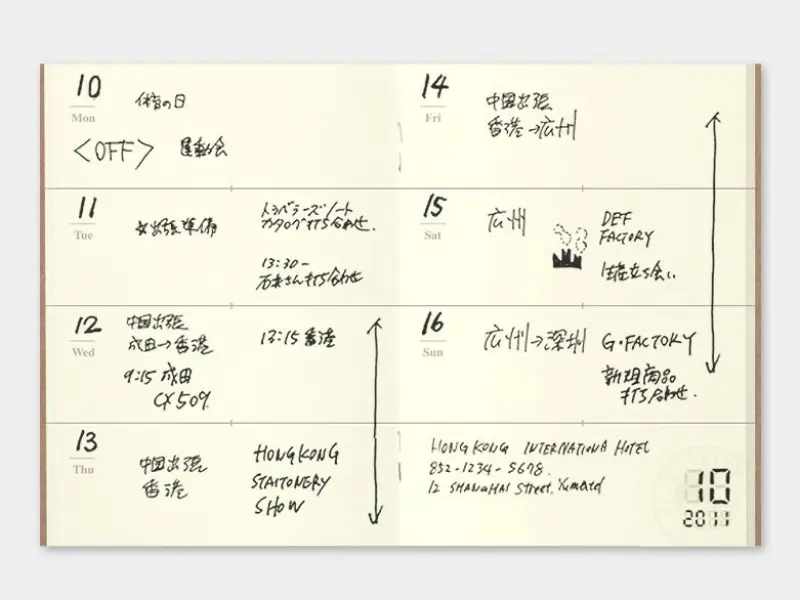 10
Mon
体育の日
<OFF> 運動会
11
Tue
出張準備
トラベラーズノート
カタログ打ち合わせ.
13:30-
石井さん打ち合わせ
12
Wed
中国出張
成田→香港
9:15 成田
CX 509
13:15 香港
13
Thu
中国出張
香港
HONG KONG
STAITONERY
SHOW
14
Fri
中国出張
香港→広州
15
Sat
広州
DEF
FACTORY
生産立ち会い
16
Sun
広州→深圳
G・FACTORY
新規商品
打ち合わせ.
HONG KONG INTERNATIONA HOTEL
852-1234-5678.
12 SHANGHAI Street,
10
2011